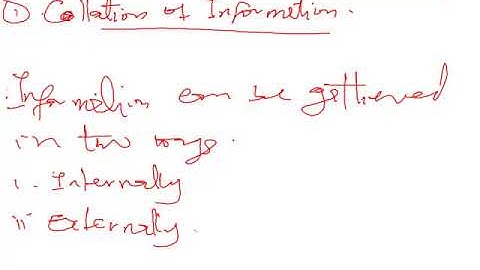 ① Collation of Information.
Information can be gathered
in two ways.
i. Internally
ii Externally.